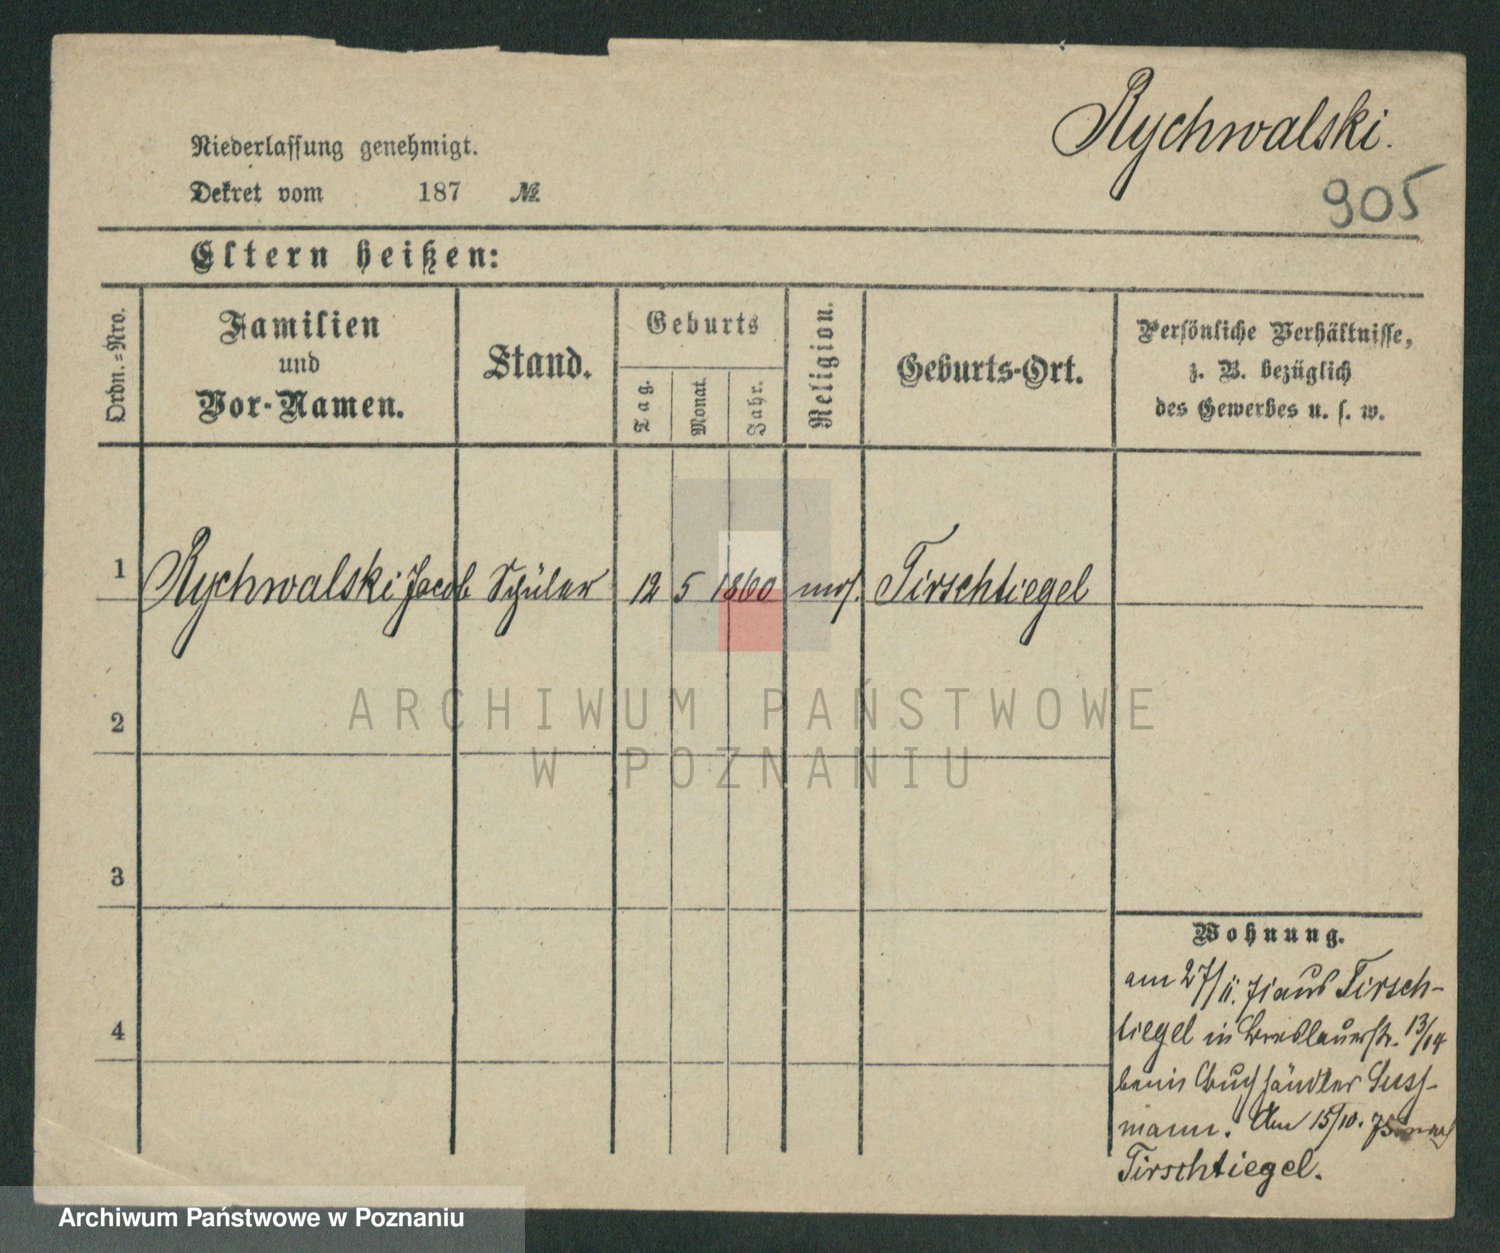 Rychwalski.
905
Niederlassung genehmigt.
Dekret vom 187 №
Eltern heißen:
Ordn.-Nro.
Familien
und
Vor-Namen.
Stand.
Geburts
Tag.
Monat.
Jahr.
Religion.
Geburts-Ort.
Persönliche Verhältnisse,
z. B. bezüglich
des Gewerbes u. s. w.
1 Rychwalski Jacob Schüler 12 5 1860 mos. Tirschtiegel
2
3
4
ARCHIWUM PAŃSTWOWE
W POZNANIU
Wohnung.
am 27/11. 71 aus Tirsch-
tiegel in Breslauerstr. 13/14
beim Buchhändler Suss-
mann. Am 15/10. 75 nach
Tirschtiegel.
Archiwum Państwowe w Poznaniu